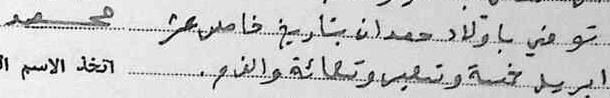 توفي باولاد حمدان بتاريخ خامس عشر محمد
ابريل خمسة وتسعين وتسعمائة والف. اتخذ الاسم ا